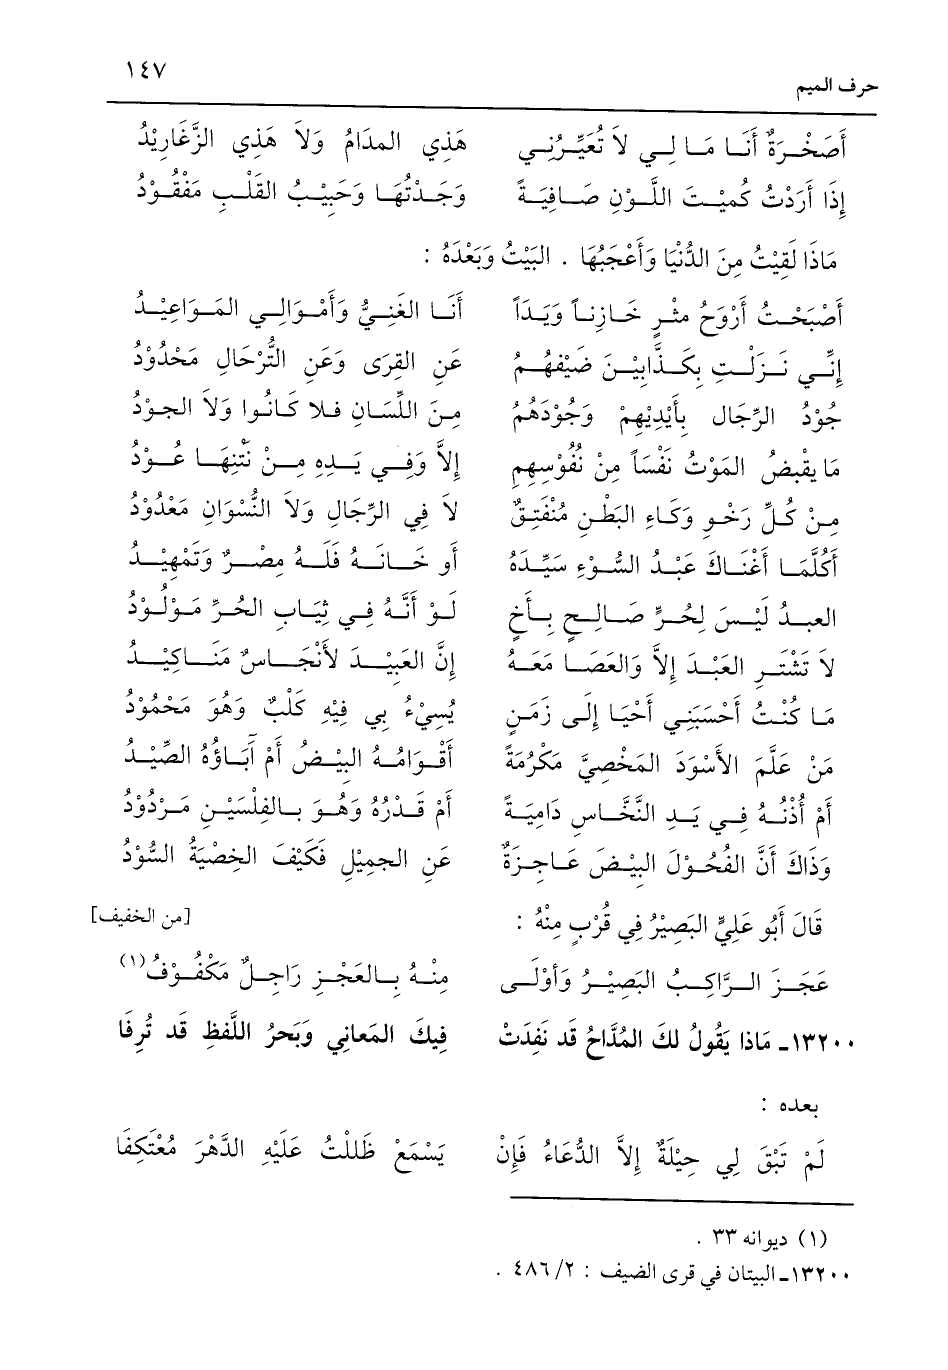 حرف الميم ١٤٧
أَصَخْرَةٌ أَنَا مَا لِي لاَ تُغَيِّرُنِي هَذِي المدَامُ وَلاَ هَذِي الزَّغَارِيْدُ
إِذَا أَرَدْتُ كُمِيْتَ اللَّوْنِ صَافِيَةً وَجَدْتُهَا وَحَبِيْبُ القَلْبِ مَفْقُوْدُ
مَاذَا لَقِيْتُ مِنَ الدُّنْيَا وَأَعْجَبُهَا . البَيْتُ وَبَعْدَهُ :
أَصْبَحْتُ أَرْوَحُ مثْرٍ خَازِناً وَيَدَاً أَنَا الغَنِيُّ وَأَمْوَالِي المَوَاعِيْدُ
إِنِّي نَزَلْتُ بِكَذَّابِيْنَ ضَيْفُهُمُ عَنِ القِرَى وَعَنِ التَّرْحَالِ مَحْدُوْدُ
جُوْدُ الرِّجَالِ بِأَيْدِيْهِمْ وَجُوْدَهُمُ مِنَ اللِّسَانِ فَلا كَانُوا وَلاَ الجوْدُ
مَا يَقْبِضُ المَوْتُ نَفْسَاً مِنْ نُفُوْسِهِمِ إِلاَّ وَفِي يَدِهِ مِنْ نَتْنِهَا عُوْدُ
مِنْ كُلِّ رَخْوِ وَكَاءِ البَطْنِ مُنْفَتِقٌ لاَ فِي الرِّجَالِ وَلاَ النُّسْوَانِ مَعْدُوْدُ
أَكُلَّمَا أَغْنَاكَ عَبْدُ السُّوْءِ سَيِّدَهُ أو خَانَهُ فَلَهُ مِصْرٌ وَتَمْهِيْدُ
العَبدُ لَيْسَ لِحُرٍّ صَالِحٍ بِأَخٍ لَوْ أَنَّهُ فِي ثِيَابِ الحُرِّ مَوْلُوْدُ
لاَ تَشْتَرِ العَبْدَ إِلاَّ وَالعَصَا مَعَهُ إِنَّ العَبِيْدَ لأَنْجَاسٌ مَنَاكِيْدُ
مَا كُنْتُ أَحْسَبَنِي أَحْيَا إِلَى زَمَنٍ يُسِيْءُ بِي فِيْهِ كَلْبٌ وَهُوَ مَحْمُوْدُ
مَنْ عَلَّمَ الأَسْوَدَ المَخْصِيَّ مَكْرُمَةً أَقْوَامُهُ البِيْضُ أَمْ آبَاؤُهُ الصِّيْدُ
أَمْ أُذْنُهُ فِي يَدِ النَّخَّاسِ دَامِيَةً أَمْ قَدْرُهُ وَهُوَ بِالفِلْسَيْنِ مَرْدُوْدُ
وَذَاكَ أَنَّ الفُحُوْلَ البِيْضَ عَاجِزَةٌ عَنِ الجمِيْلِ فَكَيْفَ الخصْيَةُ السُّوْدُ
قَالَ أَبُو عَلِيٍّ البَصِيْرُ فِي قُرْبٍ مِنْهُ : [من الخفيف]
عَجَزَ الرَّاكِبُ البَصِيْرُ وَأَوْلَى مِنْهُ بِالعَجْزِ رَاجِلٌ مَكْفُوْفُ(١)
١٣٢٠٠ـ مَاذا يَقُولُ لكَ المُدَّاحُ قَد نَفِدَتْ فِيكَ المَعاني وَبَحرُ اللَّفظِ قَد تُرِفَا
بعده :
لَمْ تَبْقَ لِي حِيْلَةٌ إِلاَّ الدُّعَاءُ فَإِنْ يَسْمَعْ ظَلَلْتُ عَلَيْهِ الدَّهْرَ مُعْتَكِفَا
(١) ديوانه ٣٣ .
١٣٢٠٠ـ البيتان في قرى الضيف : ٢/ ٤٨٦ .